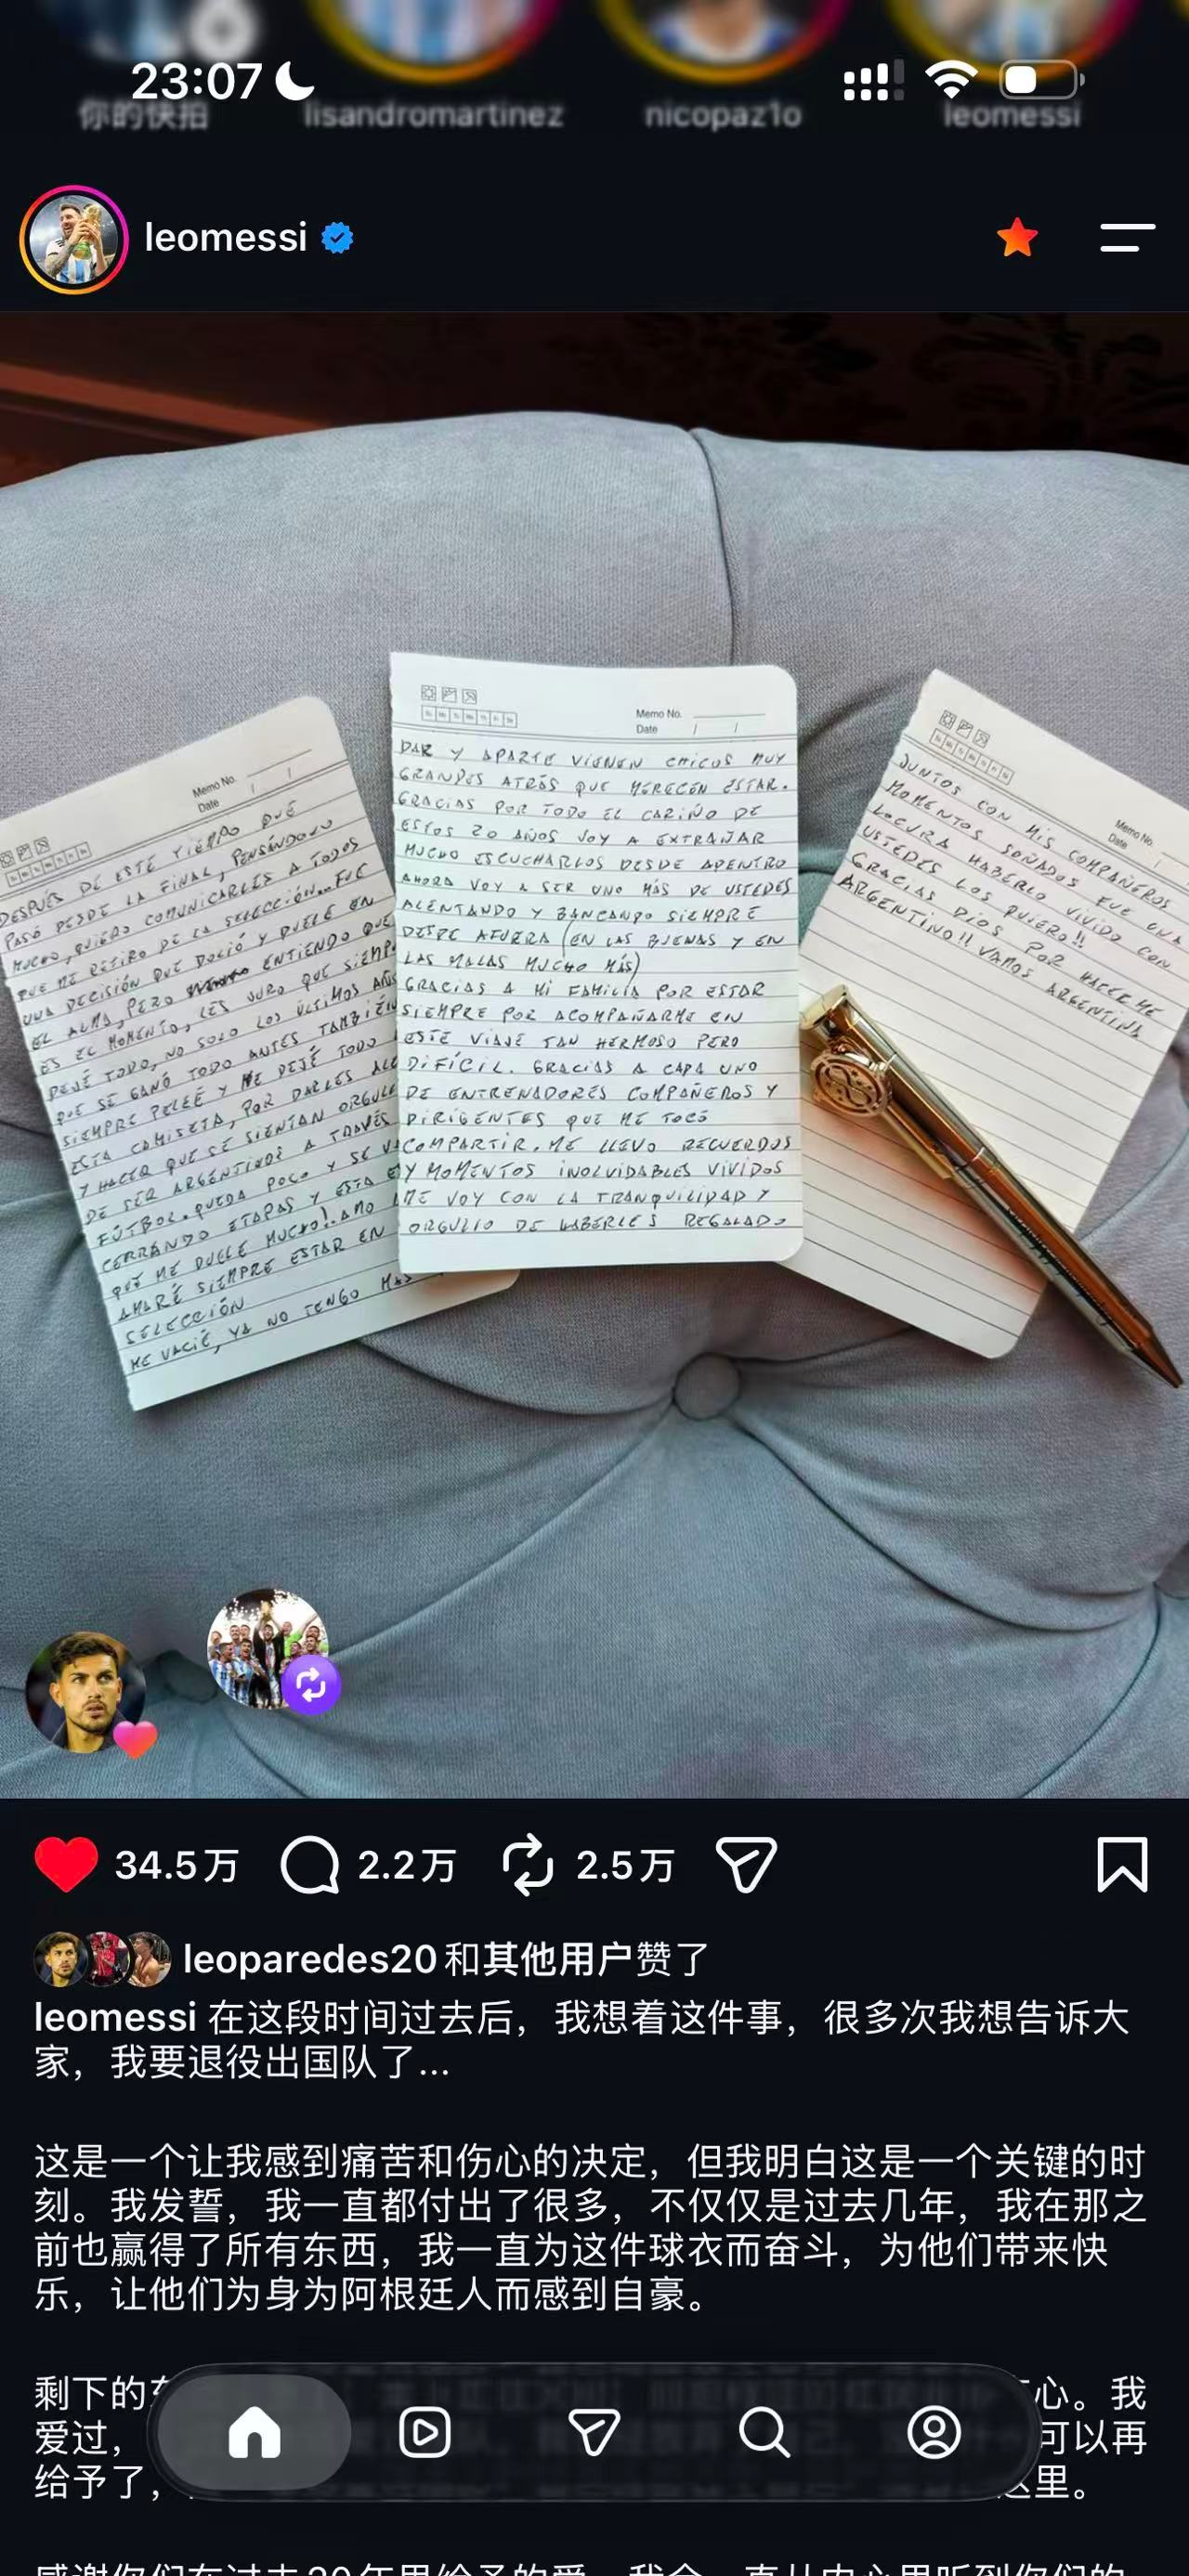 23:07
你的快拍
lisandromartinez
nicopaz1o
leomessi
leomessi
Memo No.
Date / /
DESPUÉS DE ESTE TIEMPO QUE
PASÓ DESDE LA FINAL, PENSÁNDOLO
MUCHO, QUIERO COMUNICARLES A TODOS
QUE ME RETIRO DE LA SELECCIÓN... FUE
UNA DECISIÓN QUE DOLIÓ Y DUELE EN
EL ALMA, PERO ENTIENDO QUE
ES EL MOMENTO, LES JURO QUE SIEMP
DEJÉ TODO, NO SOLO LOS ÚLTIMOS AÑOS
QUE SE GANÓ TODO ANTES TAMBIÉN
SIEMPRE PELEÉ Y ME DEJÉ TODO
ESTA CAMISETA, POR DARLES ALE
Y HACER QUE SE SIENTAN ORGULL
DE SER ARGENTINOS A TRAVÉS
FÚTBOL. QUEDA POCO Y SE VA
CERRANDO ETAPAS Y ESTA E
QUE ME DUELE MUCHO! AMO
AMARÉ SIEMPRE ESTAR EN
SELECCIÓN
ME VACIÉ, YA NO TENGO MAS
Memo No.
Date / /
DAR Y APARTE VIENEN CHICOS MUY
GRANDES ATRÁS QUE MERECEN ESTAR.
GRACIAS POR TODO EL CARIÑO DE
ESTOS 20 AÑOS VOY A EXTRAÑAR
MUCHO ESCUCHARLOS DESDE ADENTRO
AHORA VOY A SER UNO MÁS DE USTEDES
ALENTANDO Y BANCANDO SIEMPRE
DESDE AFUERA (EN LAS BUENAS Y EN
LAS MALAS MUCHO MÁS)
GRACIAS A MI FAMILIA POR ESTAR
SIEMPRE POR ACOMPAÑARME EN
ESTE VIAJE TAN HERMOSO PERO
DIFÍCIL. GRACIAS A CADA UNO
DE ENTRENADORES COMPAÑEROS Y
DIRIGENTES QUE ME TOCÓ
COMPARTIR. ME LLEVO RECUERDOS
Y MOMENTOS INOLVIDABLES VIVIDOS
ME VOY CON LA TRANQUILIDAD Y
ORGULLO DE HABERLES REGALADO
Memo No.
Date
JUNTOS CON MIS COMPAÑEROS
MOMENTOS SOÑADOS FUE UNA
LOCURA HABERLO VIVIDO CON
USTEDES LOS QUIERO!!
GRACIAS DIOS POR HACERME
ARGENTINO!! VAMOS ARGENTINA
34.5万
2.2万
2.5万
leoparedes20 和其他用户赞了
leomessi 在这段时间过去后，我想着这件事，很多次我想告诉大
家，我要退役出国队了...
这是一个让我感到痛苦和伤心的决定，但我明白这是一个关键的时
刻。我发誓，我一直都付出了很多，不仅仅是过去几年，我在那之
前也赢得了所有东西，我一直为这件球衣而奋斗，为他们带来快
乐，让他们为身为阿根廷人而感到自豪。
剩下的 心。我
爱过， 可以再
给予了， 这里。
感谢你们在过去20年里给予的爱，我会一直从内心里听到你们的